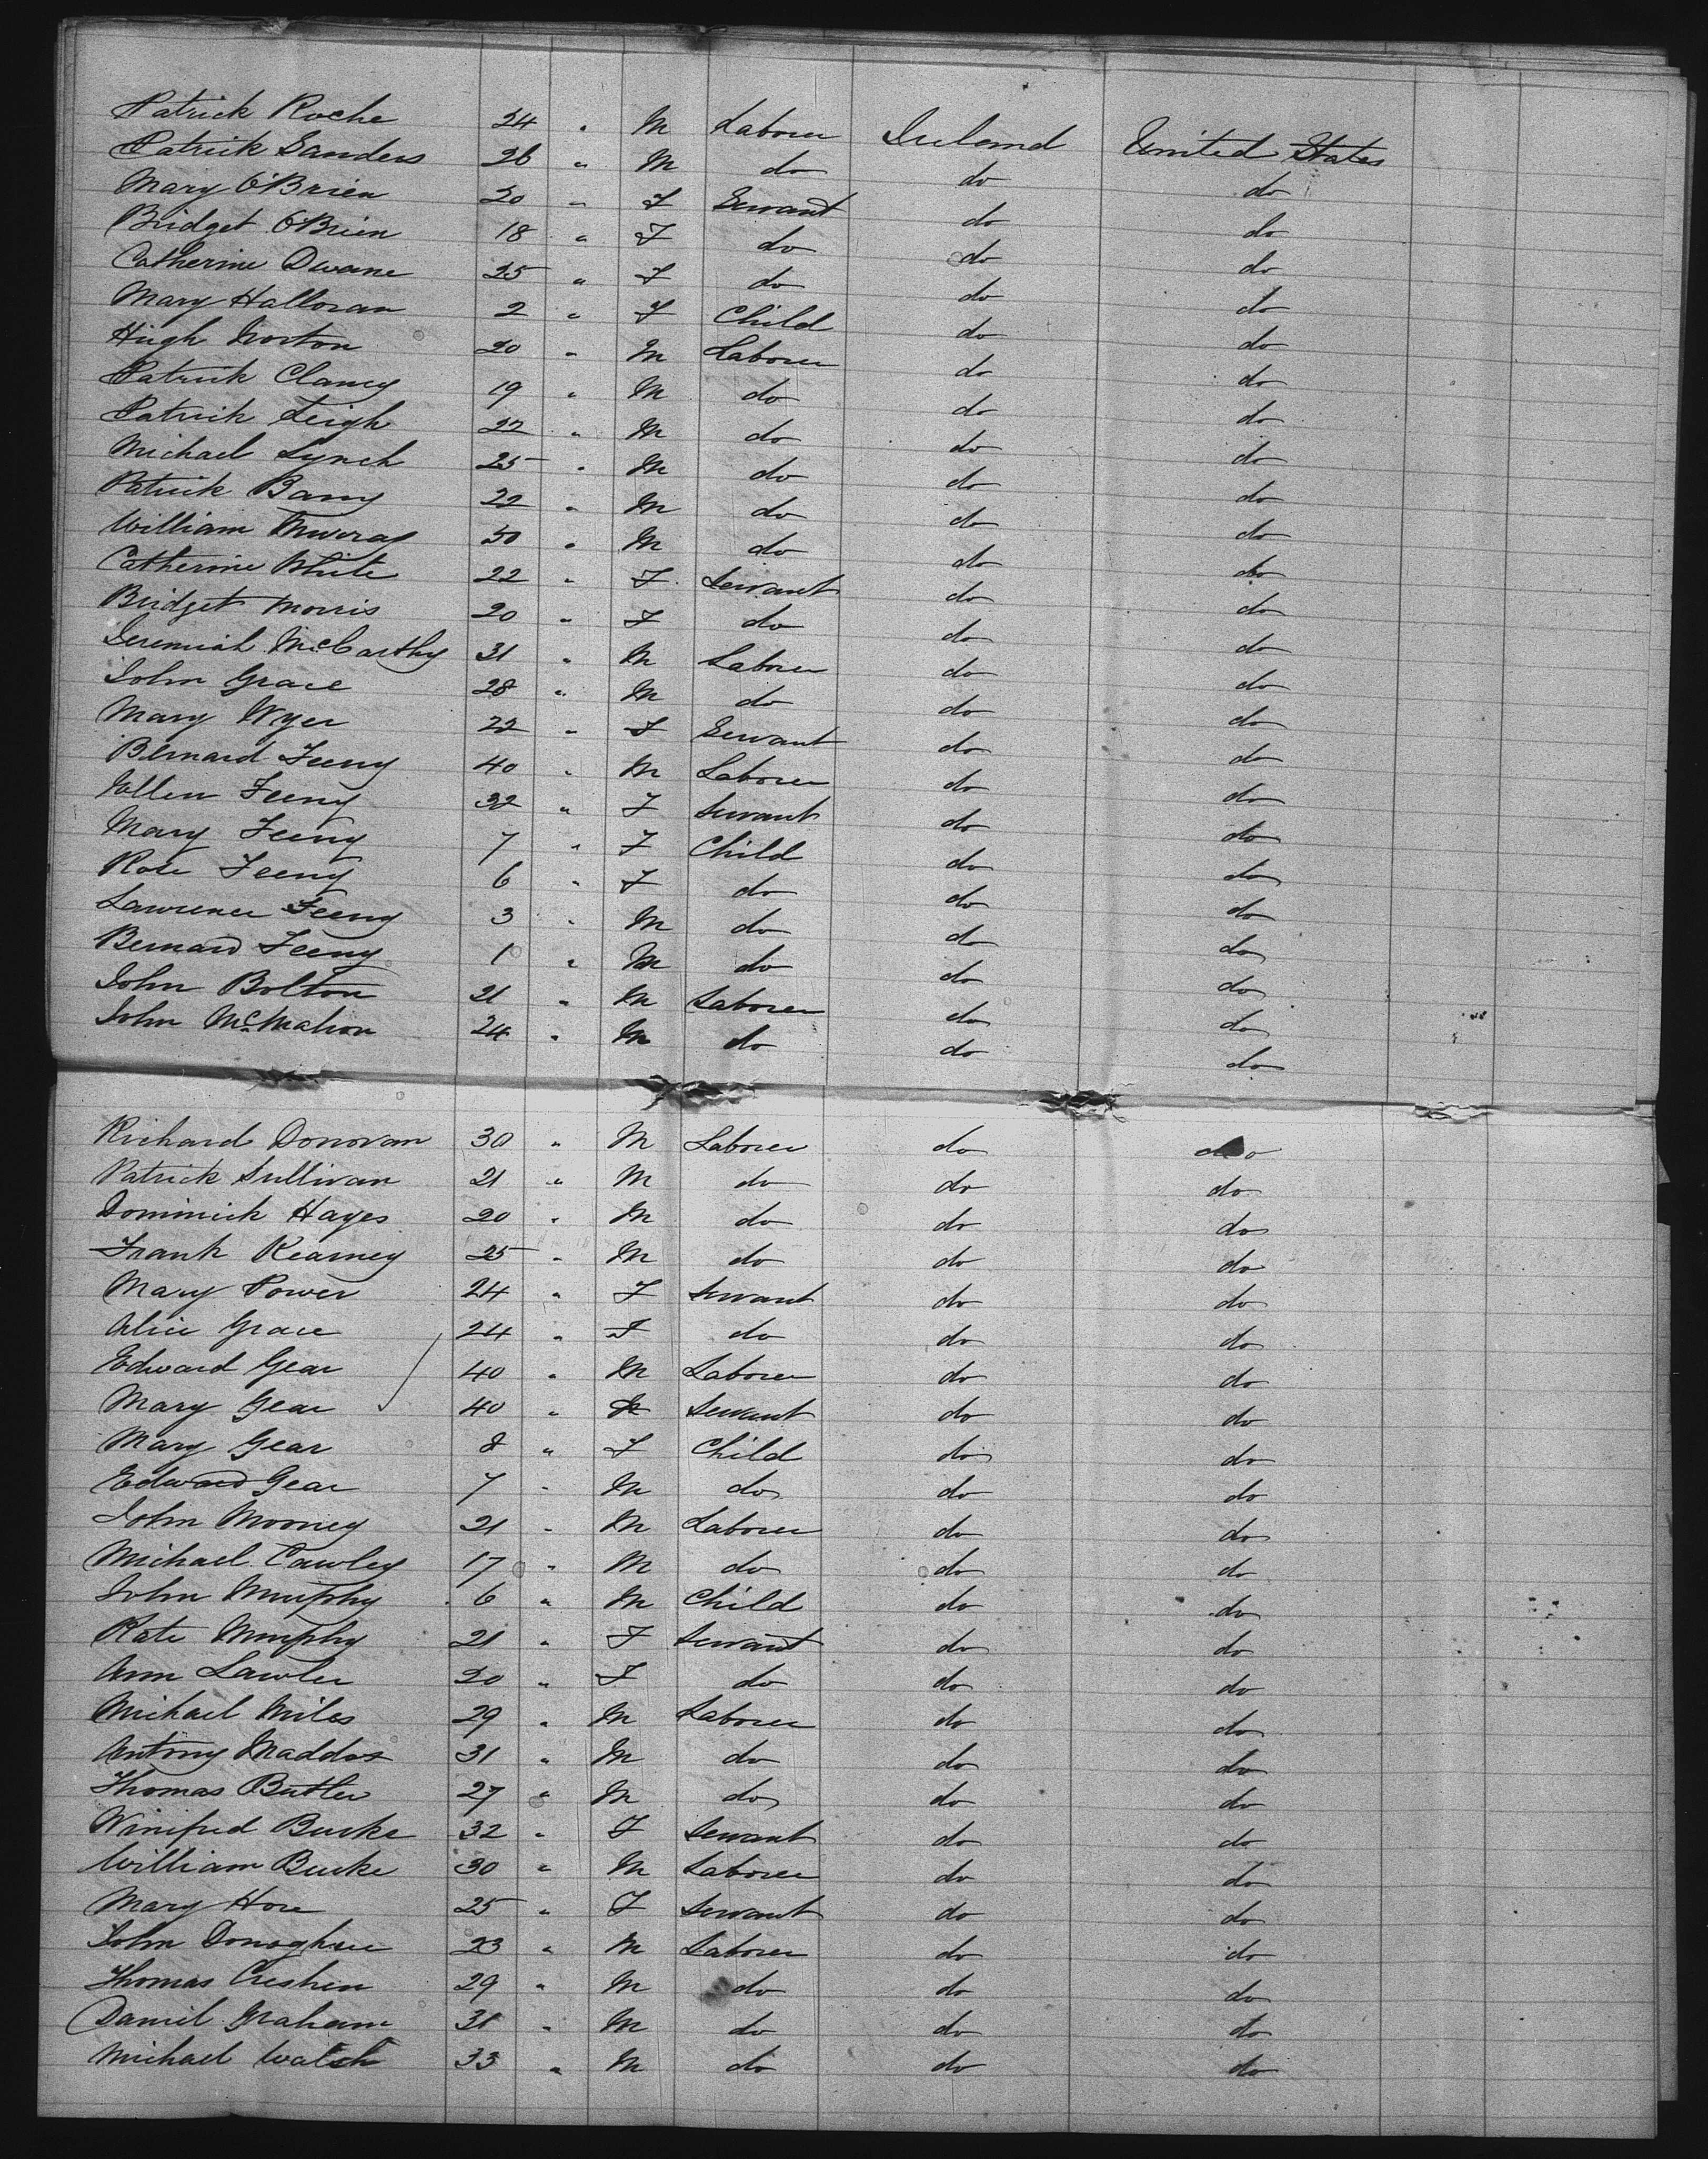 Patrick Roche 24 " M Laborer Ireland United States
Patrick Sanders 26 " M do do do
Mary O'Brien 20 " F Servant do do
Bridget O'Brien 18 " F do do do
Catherine Dwane 25 " F do do do
Mary Halloran 2 " F Child do do
Hugh Norton 20 " M Laborer do do
Patrick Clancy 19 " M do do do
Patrick Leigh 22 " M do do do
Michael Lynch 25 " M do do do
Patrick Barry 22 " M do do do
William Murray 50 " M do do do
Catherine White 22 " F Servant do do
Bridget Morris 20 " F do do do
Jeremiah McCarthy 31 " M Laborer do do
John Grace 28 " M do do do
Mary Wyer 22 " F Servant do do
Bernard Feeny 40 " M Laborer do do
Ellen Feeny 32 " F Servant do do
Mary Feeny 7 " F Child do do
Rose Feeny 6 " F do do do
Lawrence Feeny 3 " M do do do
Bernard Feeny 1 " M do do do
John Bolton 21 " M Laborer do do
John McMahon 24 " M do do do
Richard Donovan 30 " M Laborer do do
Patrick Sullivan 21 " M do do do
Dominick Hayes 20 " M do do do
Frank Kearney 25 " M do do do
Mary Power 24 " F Servant do do
Alice Grace 24 " F do do do
Edward Gear 40 " M Laborer do do
Mary Gear 40 " F Servant do do
Mary Gear 8 " F Child do do
Edward Gear 7 " M do do do
John Mooney 21 " M Laborer do do
Michael Cawley 17 " M do do do
John Murphy 6 " M Child do do
Kate Murphy 21 " F Servant do do
Ann Lawler 20 " F do do do
Michael Miles 29 " M Laborer do do
Antony Maddox 31 " M do do do
Thomas Butler 27 " M do do do
Winifred Burke 32 " F Servant do do
William Burke 30 " M Laborer do do
Mary Hore 25 " F Servant do do
John Donoghue 23 " M Laborer do do
Thomas 29 " M do do do
Daniel Graham 31 " M do do do
Michael Walsh 33 " M do do do